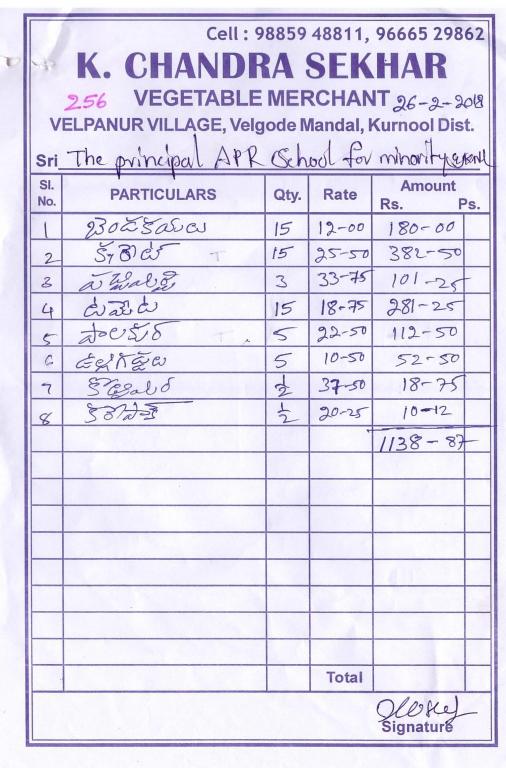 Cell : 98859 48811, 96665 29862
K. CHANDRA SEKHAR
256 VEGETABLE MERCHANT 26-2-2018
VELPANUR VILLAGE, Velgode Mandal, Kurnool Dist.
Sri The principal APR School for minority
Sl. No. PARTICULARS Qty. Rate Amount Rs. Ps.
1 బెండకాయలు 15 12-00 180-00
2 క్యారెట్ 15 25-50 382-50
3 పచ్చిమిర్చి 3 33-75 101-25
4 టమేట 15 18-75 281-25
5 పాలకూర 5 22-50 112-50
6 5 10-50 52-50
7 కొత్తిమీర ½ 37-50 18-75
8 కరేపాక్ ½ 20-25 10-12
1138-87
Total
Signature